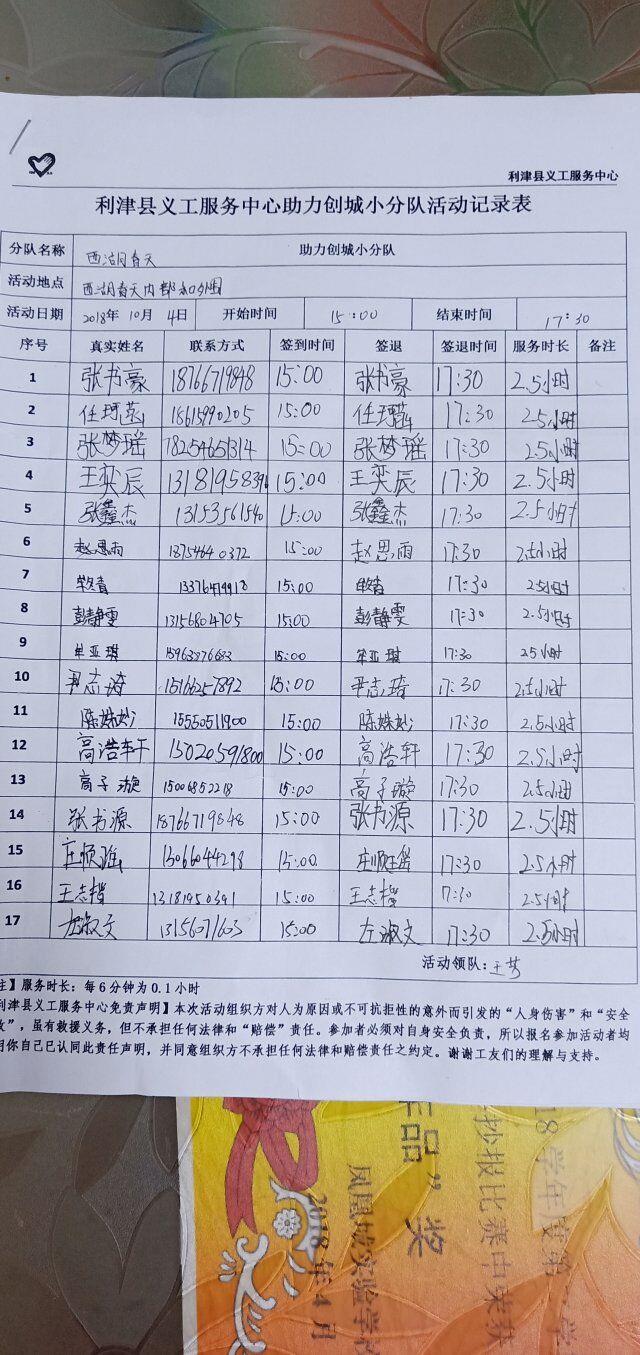 利津县义工服务中心
利津县义工服务中心助力创城小分队活动记录表
分队名称 西湖春天 助力创城小分队
活动地点 西湖春天内部和外围
活动日期 2018年 10月 4日 开始时间 15:00 结束时间 17:30
序号 真实姓名 联系方式 签到时间 签退 签退时间 服务时长 备注
1 张书豪 18766719848 15:00 张书豪 17:30 2.5小时
2 任珂菡 18615990205 15:00 任珂菡 17:30 2.5小时
3 张梦瑶 78254651314 15:00 张梦瑶 17:30 2.5小时
4 王奕辰 1318195839 15:00 王奕辰 17:30 2.5小时
5 张鑫杰 13153561540 15:00 张鑫杰 17:30 2.5小时
6 赵思雨 18754640372 15:00 赵思雨 17:30 2.5小时
7 15:00 17:30 2.5小时
8 彭静雯 13156804705 15:00 彭静雯 17:30 2.5小时
9 牟亚琪 15963376683 15:00 牟亚琪 17:30 2.5小时
10 尹志琦 15166257892 15:00 尹志琦 17:30 2.5小时
11 陈姝妙 15550511900 15:00 陈姝妙 17:30 2.5小时
12 高浩轩 15020591800 15:00 高浩轩 17:30 2.5小时
13 高子璇 15006852218 15:00 高子璇 17:30 2.5小时
14 张书源 18766719848 15:00 张书源 17:30 2.5小时
15 13066044298 15:00 17:30 2.5小时
16 王志楷 13181950391 15:00 王志楷 17:30 2.5小时
17 左淑文 13156071603 15:00 左淑文 17:30 2.5小时
活动领队:
注】服务时长：每6分钟为0.1小时
利津县义工服务中心免责声明】本次活动组织方对人为原因或不可抗拒性的意外而引发的“人身伤害”和“安全
故”，虽有救援义务，但不承担任何法律和“赔偿”责任。参加者必须对自身安全负责，所以报名参加活动者均
明你自己已认同此责任声明，并同意组织方不承担任何法律和赔偿责任之约定。谢谢工友们的理解与支持。
18学年度第
抄报比赛中荣获
作品”奖
凤凰城实验学校
2018年4月